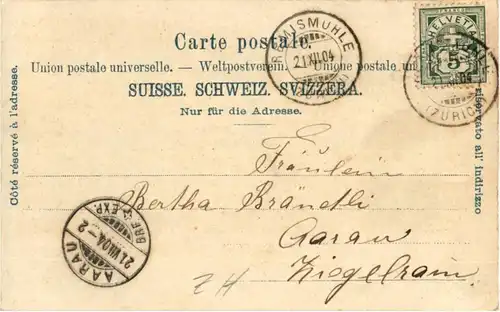 Carte postale.
Union postale universelle. — Weltpostverein. — Unione postale
SUISSE. SCHWEIZ. SVIZZERA.
Nur für die Adresse.
Côté réservé à l'adresse.
riservato all' indirizzo
HELVETIA
5
21.XII.04
(ZÜRICH)
Fräulein
Bertha Brändli
Aarau
Ziegelrain.
AARAU
21.XII.04.-2
BRF. EXP.